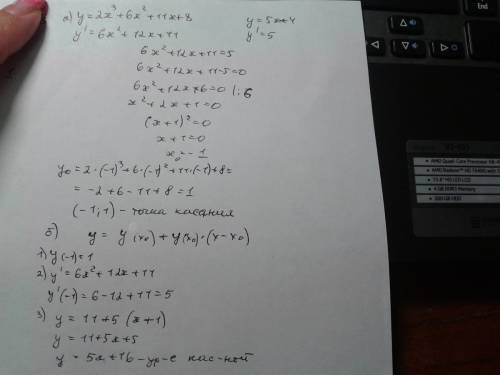 а) y = 2x³+6x²+11x+8
y = 5x+4
y' = 6x²+12x+11
y' = 5
6x²+12x+11=5
6x²+12x+11-5=0
6x²+12x+6=0 |:6
x²+2x+1=0
(x+1)²=0
x+1=0
x₀=-1
y₀=2·(-1)³+6·(-1)²+11·(-1)+8=
= -2+6-11+8=1
(-1;1) - точка касания
б) y = y(x₀)+y'(x₀)·(x-x₀)
1) y(-1)=1
2) y'=6x²+12x+11
y'(-1)=6-12+11=5
3) y = 11+5(x+1)
y = 11+5x+5
y = 5x+16 - ур-е кас-ной